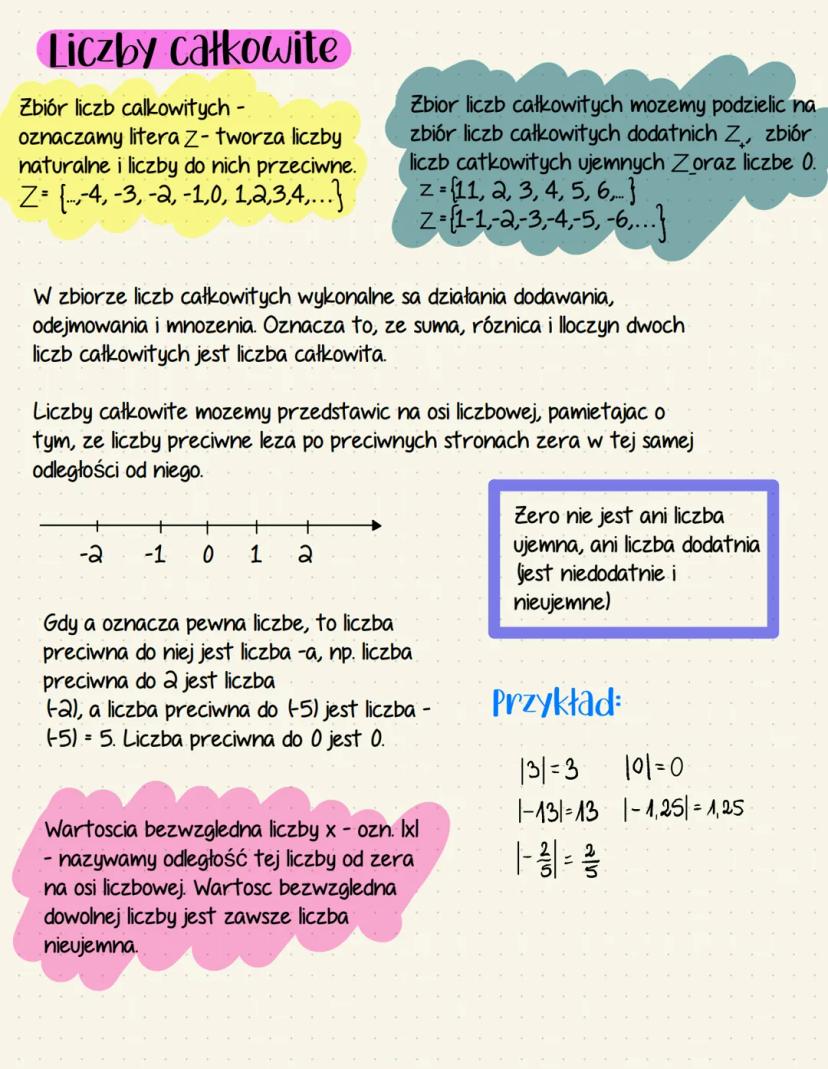 Liczby całkowite
Zbiór liczb calkowitych -
oznaczamy litera Z - tworza liczby
naturalne i liczby do nich przeciwne.
Z = {...,-4, -3, -2, -1,0, 1,2,3,4,...}
Zbior liczb całkowitych mozemy podzielic na
zbiór liczb całkowitych dodatnich Z₊, zbiór
liczb catkowitych ujemnych Z₋ oraz liczbe 0.
Z = {11, 2, 3, 4, 5, 6,...}
Z = {1-1,-2,-3,-4,-5, -6,...}
W zbiorze liczb całkowitych wykonalne sa działania dodawania,
odejmowania i mnozenia. Oznacza to, ze suma, róznica i lloczyn dwoch
liczb całkowitych jest liczba całkowita.
Liczby całkowite mozemy przedstawic na osi liczbowej, pamietajac o
tym, ze liczby preciwne leza po preciwnych stronach zera w tej samej
odległości od niego.
-2 -1 0 1 2
Zero nie jest ani liczba
ujemna, ani liczba dodatnia
(jest niedodatnie i
nieujemne)
Gdy a oznacza pewna liczbe, to liczba
preciwna do niej jest liczba -a, np. liczba
preciwna do 2 jest liczba
(-2), a liczba preciwna do (-5) jest liczba -
(-5) = 5. Liczba preciwna do 0 jest 0.
Przykład:
|3| = 3 |0| = 0
|-13| = 13 |-1,25| = 1,25
|-2/5| = 2/5
Wartoscia bezwzgledna liczby x - ozn. |x|
- nazywamy odległość tej liczby od zera
na osi liczbowej. Wartosc bezwzgledna
dowolnej liczby jest zawsze liczba
nieujemna.